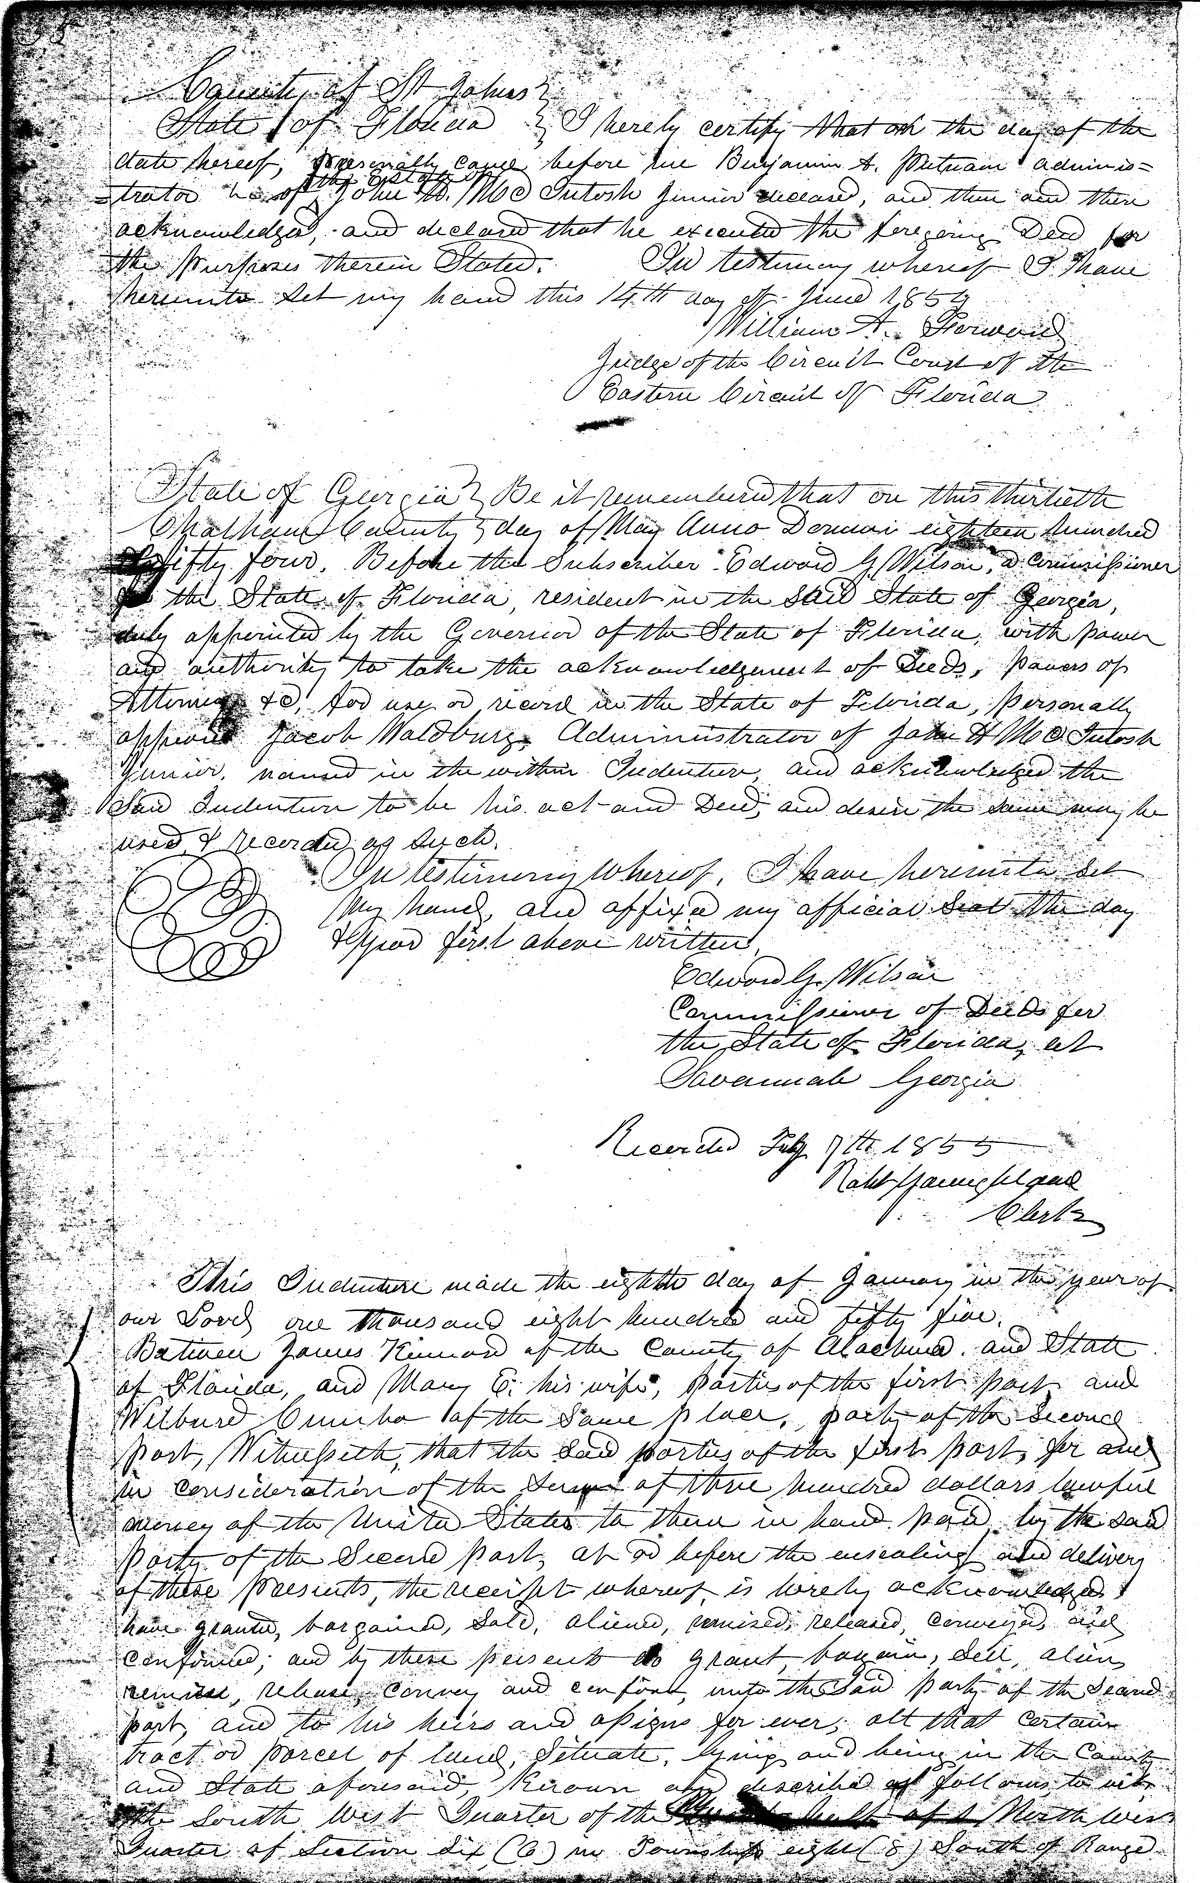 County of St Johns }
State of Florida } I hereby certify that on the day of the
date hereof, personally came before me Benjamin A. Putnam adminis=
the estate of
=trator of John H. McIntosh Junior deceased, and then and there
acknowledged, and declared that he executed the foregoing Deed for
the purposes therein Stated. In testimony whereof I have
hereunto set my hand this 14th day of June 1854
William A. Forward
Judge of the Circuit Court of the
Eastern Circuit of Florida
State of Georgia } Be it remembered that on this thirtieth
Chatham County } day of May Anno Domini eighteen hundred
fifty four. Before the Subscriber Edward G. Wilson, a commissioner
the State of Florida, resident in the said State of Georgia,
duly appointed by the Governor of the State of Florida, with power
and authority to take the acknowledgement of Deeds, powers of
Attorney &c, for use or record in the State of Florida, personally
appeared Jacob Waldburg, Administrator of John H McIntosh
Junior, named in the within Indenture, and acknowledged the
Said Indenture to be his act and Deed, and desire the same may be
used & recorded as such.
In testimony whereof, I have hereunto set
my hand, and affixed my official Seal the day
& year first above written.
Edward G. Wilson
Commissioner of Deeds for
the State of Florida, at
Savannah Georgia
Recorded Feby 7th 1855
Robt Youngblood
Clerk
This Indenture made the eighth day of January in the year of
our Lord one thousand eight hundred and fifty five.
Between James Kinnard of the County of Alachua and State
of Florida, and Mary E. his wife, parties of the first part and
of the same place, party of the Second
part, Witnesseth, that the said parties of the first part, for and
in consideration of the Sum of three hundred dollars lawful
money of the United States to them in hand paid by the said
party of the Second part, at or before the ensealing and delivery
of these presents, the receipt whereof is hereby acknowledged
have granted, bargained, Sold, aliened, remised, released, conveyed, and
confirmed; and by these presents do grant, bargain, Sell, alien,
remise, release, convey and confirm, unto the Said party of the Second
part, and to his heirs and assigns for ever, all that certain
tract or parcel of land, Situate, lying and being in the County
and State aforesaid, known and described as follows, to wit
the South West Quarter of the North West
Quarter of Section Six (6) in Township eight (8) South of Range